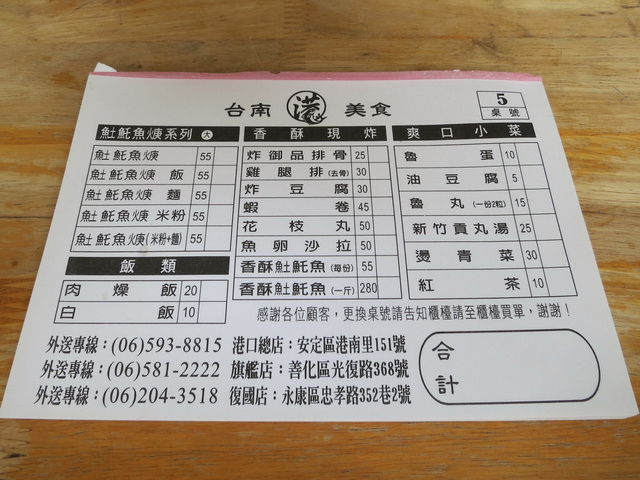 台南 美食
5
桌號
魠魚焿系列 大
魠魚焿 55
魠魚焿 飯 55
魠魚焿 麵 55
魠魚焿 米粉 55
魠魚焿(米粉+麵) 55
飯類
肉燥飯 20
白飯 10
香酥現炸
炸御品排骨 25
雞腿排(去骨) 30
炸豆腐 30
蝦卷 45
花枝丸 50
魚卵沙拉 50
香酥魠魚(每份) 55
香酥魠魚(一斤) 280
爽口小菜
魯蛋 10
油豆腐 5
魯丸(一份2粒) 15
新竹貢丸湯 25
燙青菜 30
紅茶 10
感謝各位顧客，更換桌號請告知櫃檯請至櫃檯買單，謝謝！
外送專線：(06)593-8815 港口總店：安定區港南里151號
外送專線：(06)581-2222 旗艦店：善化區光復路368號
外送專線：(06)204-3518 復國店：永康區忠孝路352巷2號
合計